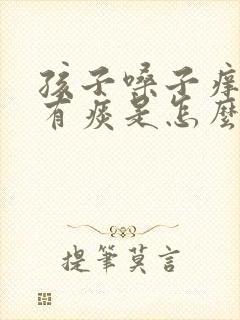 孩子嗓子痒
有痰是怎麼
提筆莫言